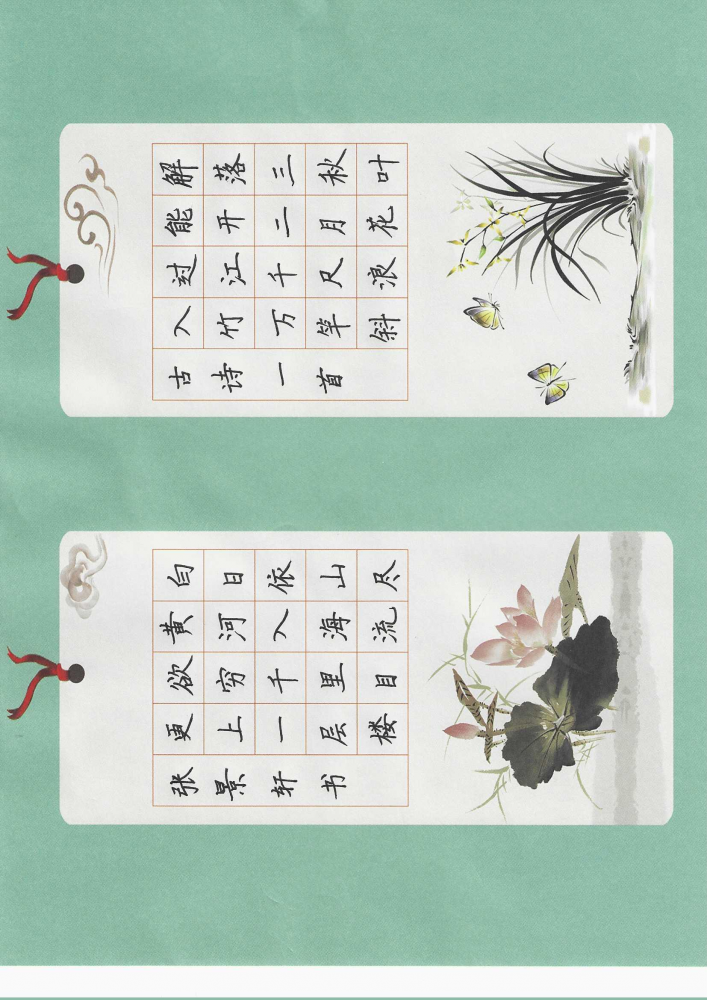 解落三秋叶
能开二月花
过江千尺浪
入竹万竿斜
古诗一首
白日依山尽
黄河入海流
欲穷千里目
更上一层楼
张景轩书